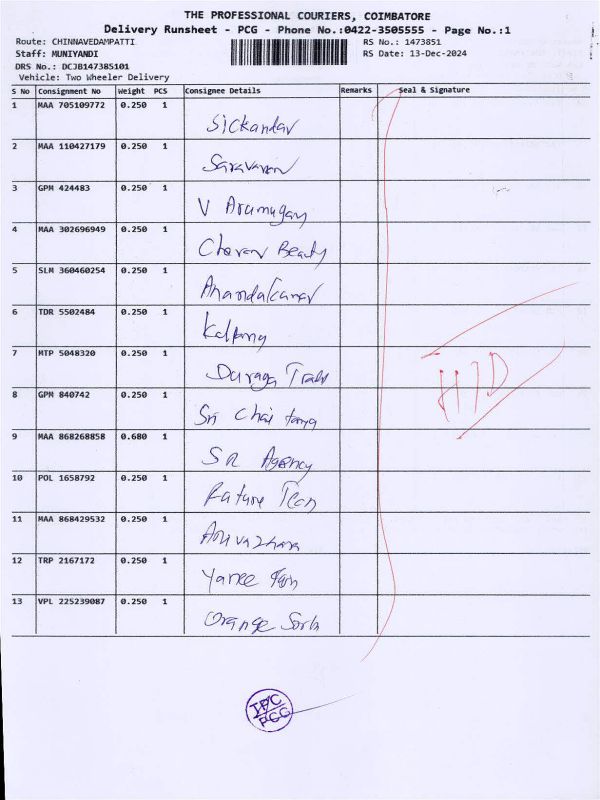 THE PROFESSIONAL COURIERS, COIMBATORE
Delivery Runsheet - PCG - Phone No.:0422-3505555 - Page No.:1
Route: CHINNAVEDAMPATTI
RS No.: 1473851
Staff: MUNIYANDI
RS Date: 13-Dec-2024
DRS No.: DCJB147385101
Vehicle: Two Wheeler Delivery
S No Consignment No Weight PCS Consignee Details Remarks Seal & Signature
1 MAA 705109772 0.250 1 Sickandar
2 MAA 110427179 0.250 1 Saravanan
3 GPM 424483 0.250 1 V Arumugam
4 MAA 302696949 0.250 1 Beauty
5 SLM 360460254 0.250 1 Anandakumar
6 TDR 5502484 0.250 1
7 MTP 5048320 0.250 1
8 GPM 840742 0.250 1 Sri Chaitanya
9 MAA 868268858 0.680 1 SR Agency
10 POL 1658792 0.250 1
11 MAA 868429532 0.250 1
12 TRP 2167172 0.250 1
13 VPL 225239087 0.250 1 Orange
H/D
TPC
PCG